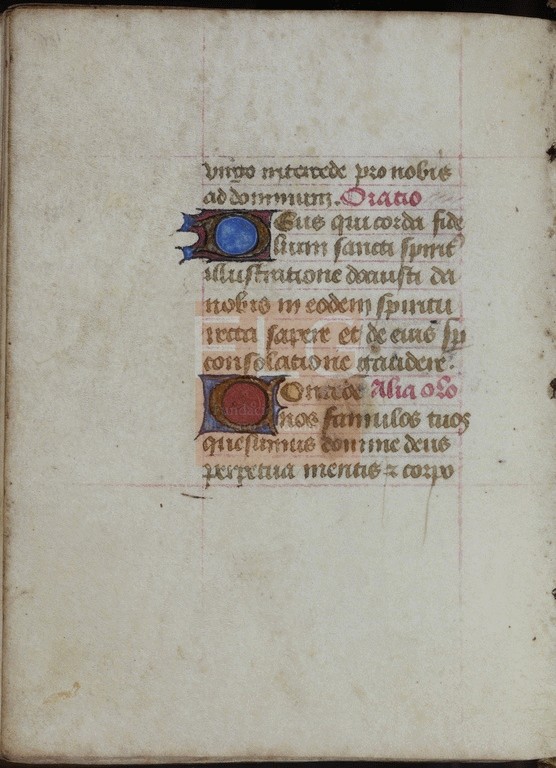 virgo intercede pro nobis
ad dominum. Oratio
Deus qui corda fide
lium sancti spirit
illustratione docuisti da
nobis in eodem spiritu
recta sapere et de eius sp
consolatione gaudere.
Concede Alia oro
nos famulos tuos
quesumus domine deus
perpetua mentis ⁊ corpo